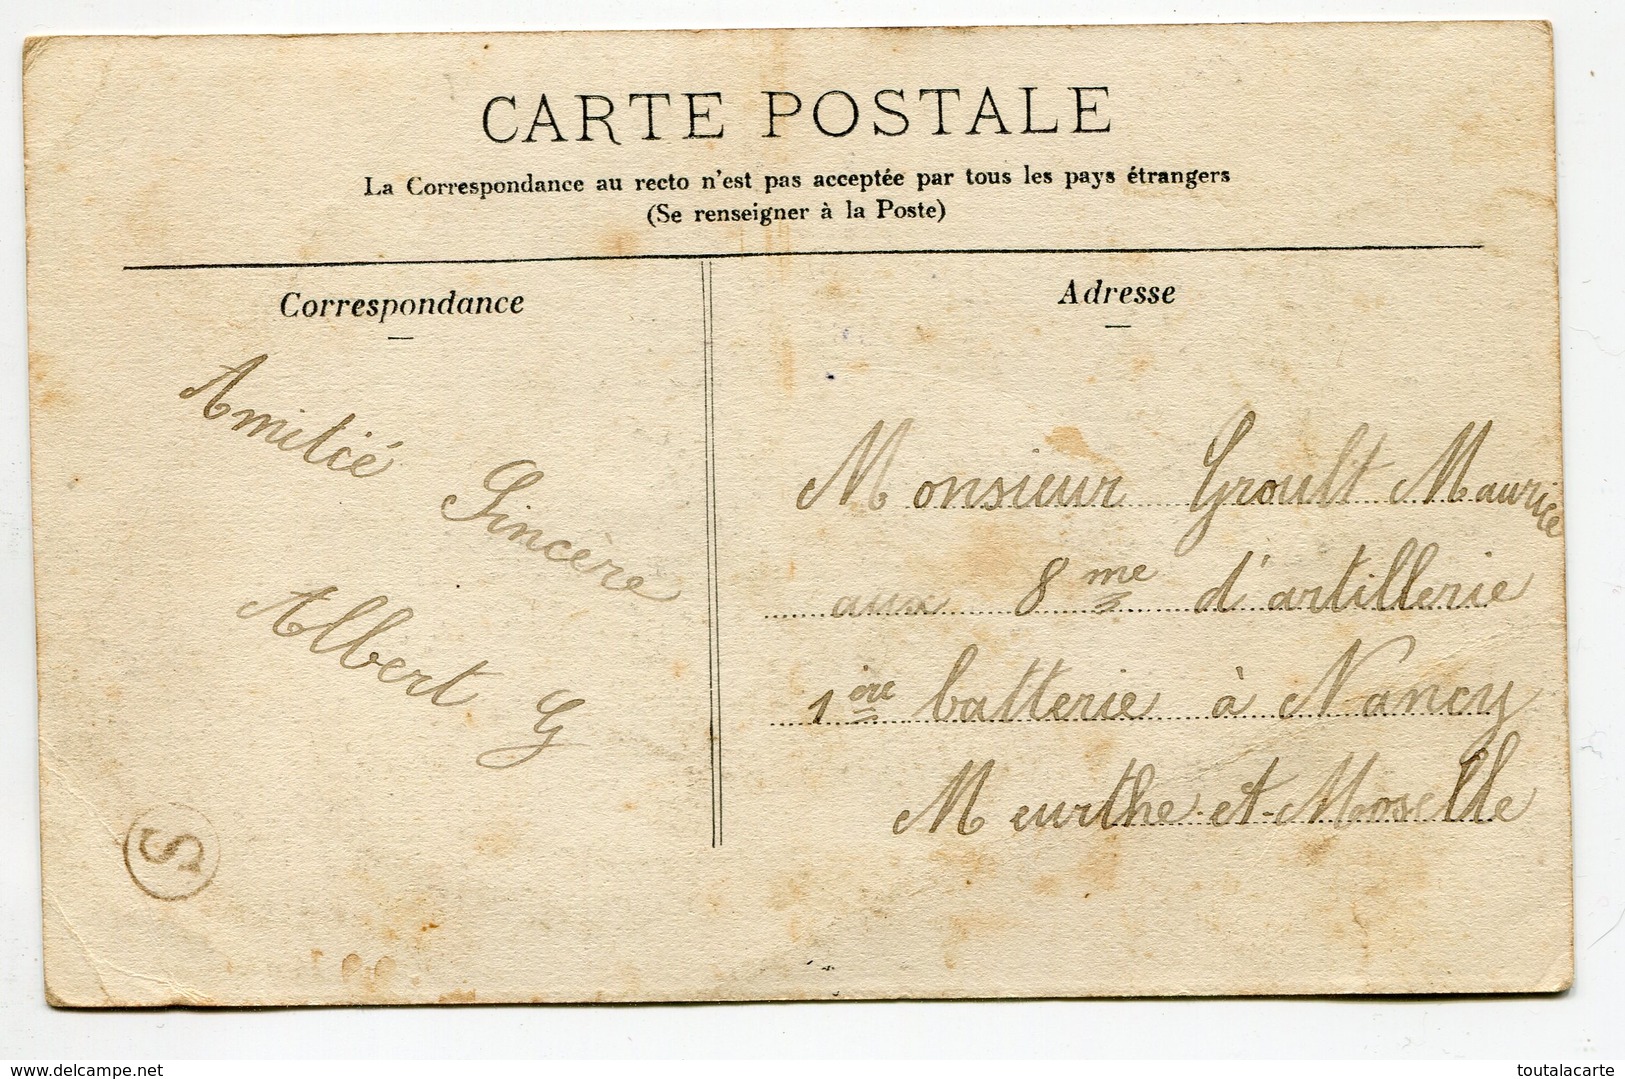 CARTE POSTALE
La Correspondance au recto n'est pas acceptée par tous les pays étrangers
(Se renseigner à la Poste)
Correspondance
Amitié Sincère
Albert G
S
Adresse
Monsieur Groult Maurice
aux 8me d'artillerie
1ère batterie à Nancy
Meurthe-et-Moselle
www.delcampe.net
toutalacarte